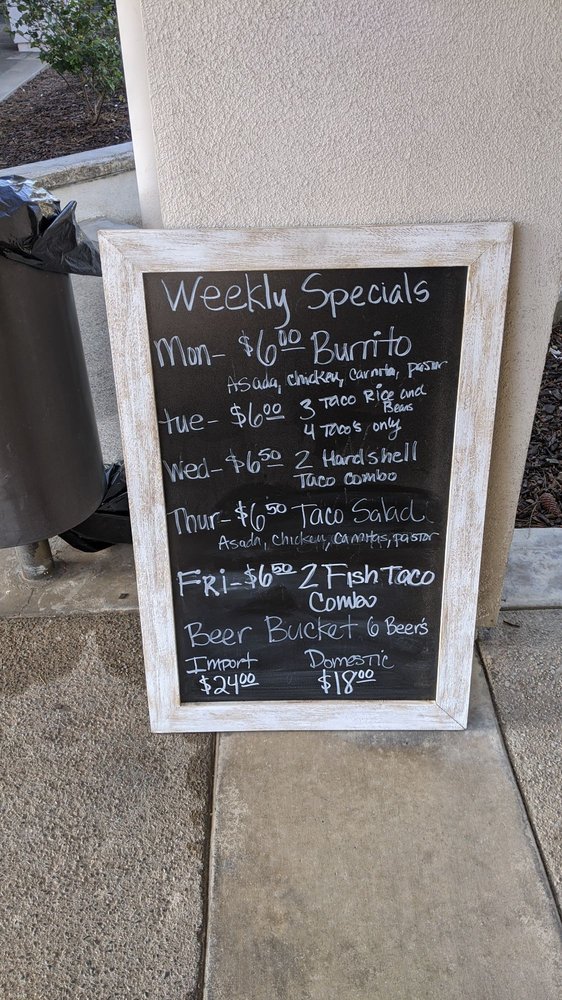 Weekly Specials
Mon- $6.00 Burrito
Asada, chicken, carnita, pastor
Tue- $6.00 3 Taco Rice and Beans
4 Taco's only
Wed- $6.50 2 Hardshell
Taco Combo
Thur- $6.50 Taco Salad
Asada, chicken, carnitas, pastor
FRI- $6.50 2 Fish Taco
Combo
Beer Bucket 6 Beer's
Import Domestic
$24.00 $18.00